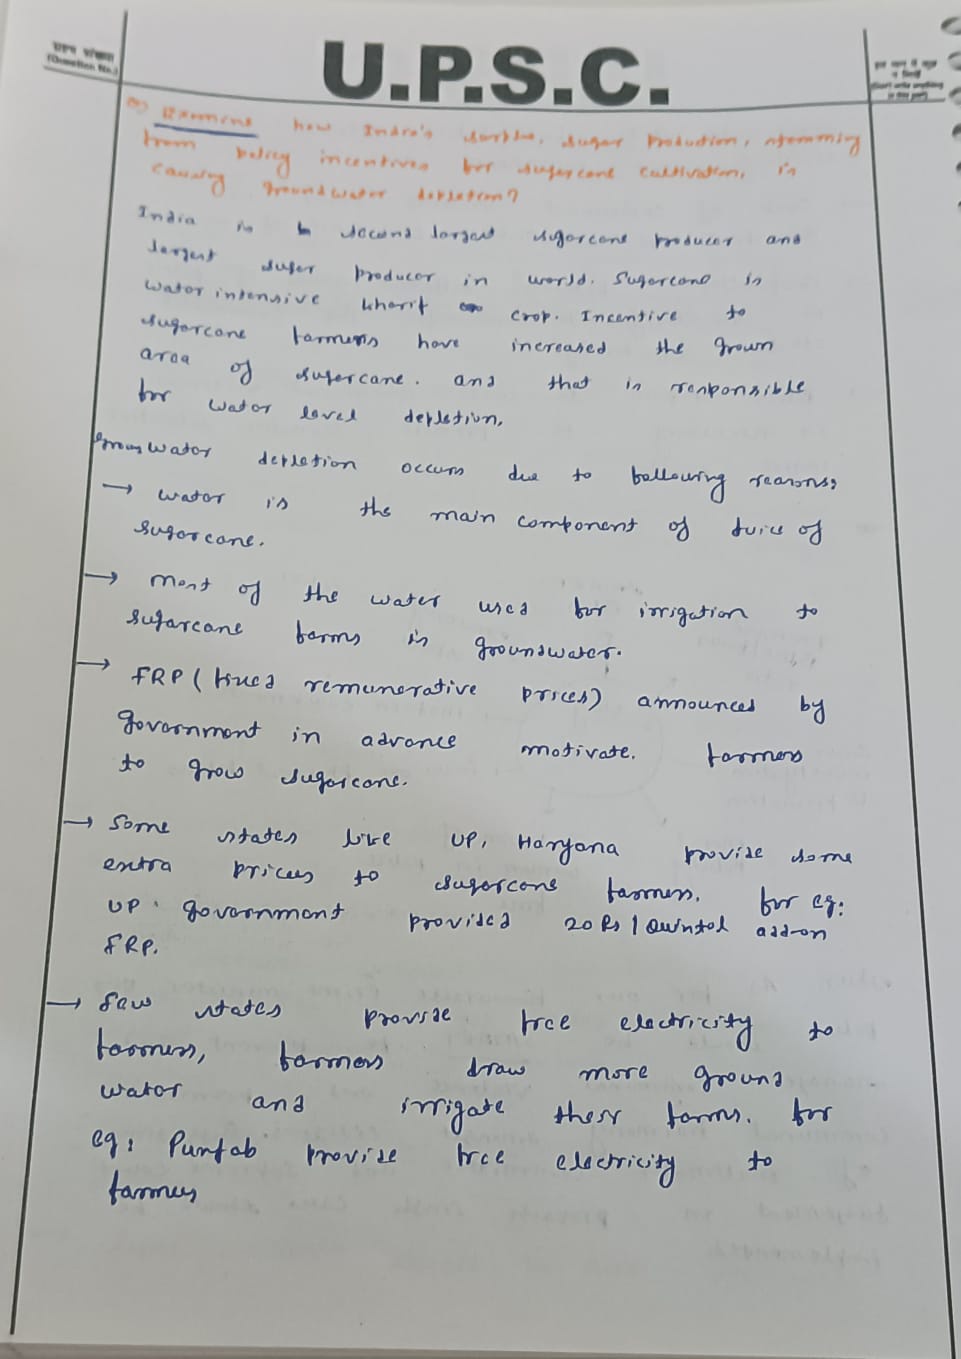 प्रश्न संख्या
(Question No.)
U.P.S.C.
(Don't write anything
in this part)
Q) Examine how India's surplus sugar production, stemming
from policy incentives for sugarcane cultivation, is
causing groundwater depletion?
India is second largest sugarcane producer and
largest suger producer in world. Sugarcane is
water intensive kharif crop. Incentive to
sugarcane farmers have increased the grown
area of sugercane. and that is responsible
for water level depletion.
Groundwater depletion occurs due to following reasons:
→ water is the main component of juice of
sugorcane.
→ most of the water used for irrigation to
sugarcane farms is groundwater.
→ FRP (fixed remunerative prices) announced by
government in advance motivate. farmers
to grow sugarcane.
→ Some states like UP, Haryana provide some
extra prices to sugarcane farmers. for eg:
UP. government provided 20 Rs / Quintal add-on
FRP.
→ few states provide free electricity to
farmers, farmers draw more ground
water and irrigate their farms. for
eg: Punjab provide free electricity to
farmers